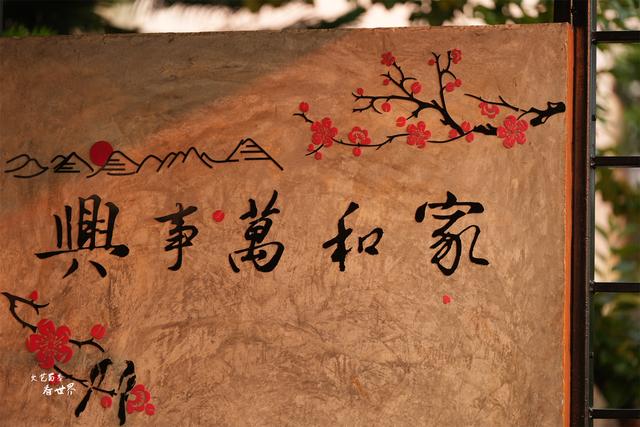 家和萬事興
看世界